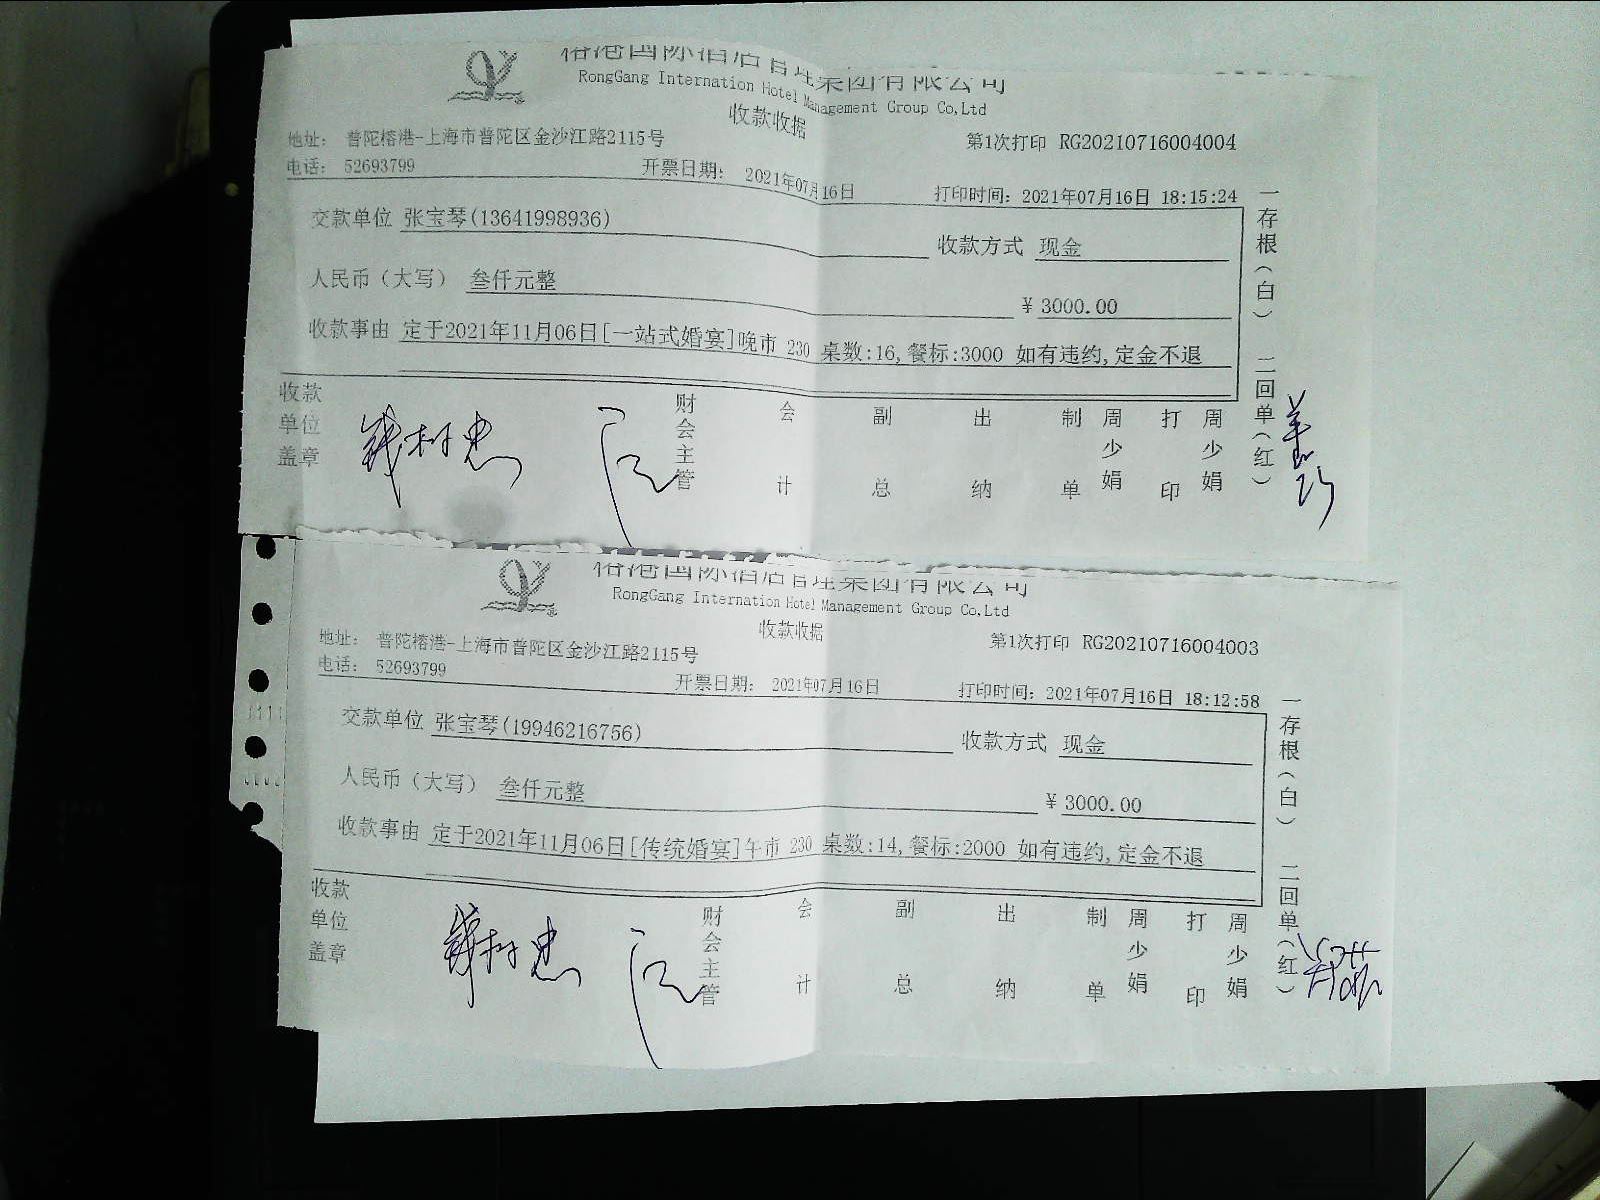 榕港国际酒店管理集团有限公司
RongGang Internation Hotel Management Group Co,Ltd
收款收据
地址： 普陀榕港-上海市普陀区金沙江路2115号
第1次打印 RG20210716004004
电话： 52693799
开票日期： 2021年07月16日
打印时间：2021年07月16日 18:15:24
交款单位 张宝琴(13641998936)
收款方式 现金
人民币（大写） 叁仟元整
¥ 3000.00
收款事由 定于2021年11月06日[一站式婚宴]晚市 230 桌数:16,餐标:3000 如有违约,定金不退
收款单位盖章
钱树忠
财会主管
会计
副总
出纳
制单
周少娟
打印
周少娟
一存根（白） 二回单（红）
榕港国际酒店管理集团有限公司
RongGang Internation Hotel Management Group Co,Ltd
收款收据
地址： 普陀榕港-上海市普陀区金沙江路2115号
第1次打印 RG20210716004003
电话： 52693799
开票日期： 2021年07月16日
打印时间：2021年07月16日 18:12:58
交款单位 张宝琴(19946216756)
收款方式 现金
人民币（大写） 叁仟元整
¥ 3000.00
收款事由 定于2021年11月06日[传统婚宴]午市 230 桌数:14,餐标:2000 如有违约,定金不退
收款单位盖章
钱树忠
财会主管
会计
副总
出纳
制单
周少娟
打印
周少娟
一存根（白） 二回单（红）